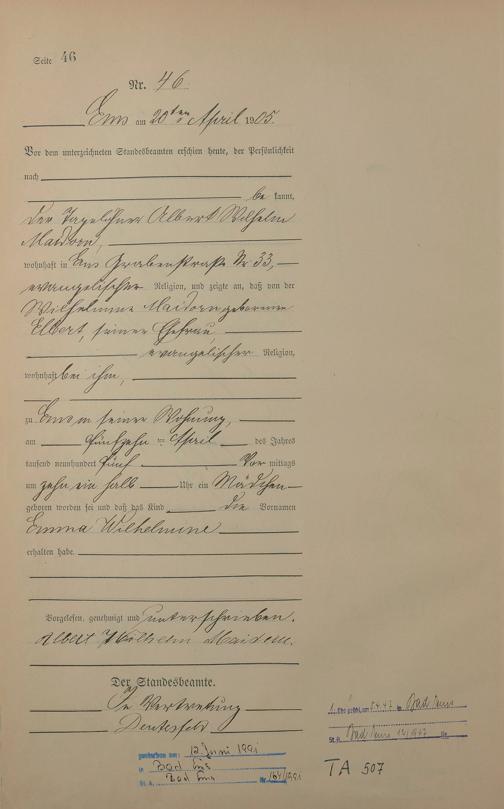 Seite 46
Nr. 46
Ems am 20ten April 1905
Vor dem unterzeichneten Standesbeamten erschien heute, der Persönlichkeit
nach
be kannt,
der Tagelöhner Albert Wilhelm
Maidorn,
wohnhaft in Ems Grabenstraße Nr 33,
evangelischer Religion, und zeigte an, daß von der
Wilhelmine Maidorn geborenen
Elbert, seiner Ehefrau,
evangelischer Religion,
wohnhaft bei ihm,
zu Ems in seiner Wohnung,
am fünfzehn ten April des Jahres
tausend neunhundert fünf Vor mittags
um zehn ein halb Uhr ein Mädchen
geboren worden sei und daß das Kind die Vornamen
Emma Wilhelmine
erhalten habe.
Vorgelesen, genehmigt und unterschrieben.
Albert Wilhelm Maidorn.
Der Standesbeamte.
In Vertretung
gestorben am: 12. Juni 1991
in Bad Ems
St. A. Bad Ems Nr. 164/1991
in Bad Ems
St. A. Bad Ems
TA 507